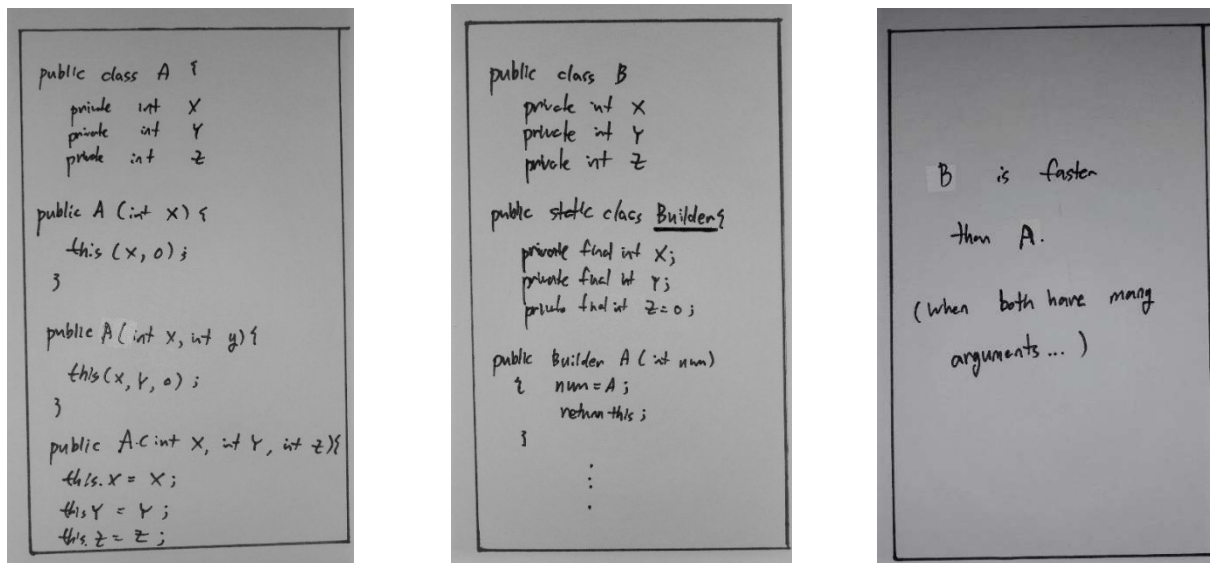 public class A {
private int X
private int Y
private int Z
public A (int X) {
this (X, 0) ;
}
public A (int X, int y) {
this (X, Y, 0) ;
}
public A (int X, int Y, int Z) {
this.X = X ;
this Y = Y ;
this.Z = Z ;
public class B
private int X
private int Y
private int Z
public static class Builder {
private final int X ;
private final int Y ;
private final int Z = 0 ;
public Builder A (int num)
{ num = A ;
return this ;
}
B is faster
than A.
(when both have many
arguments ... )